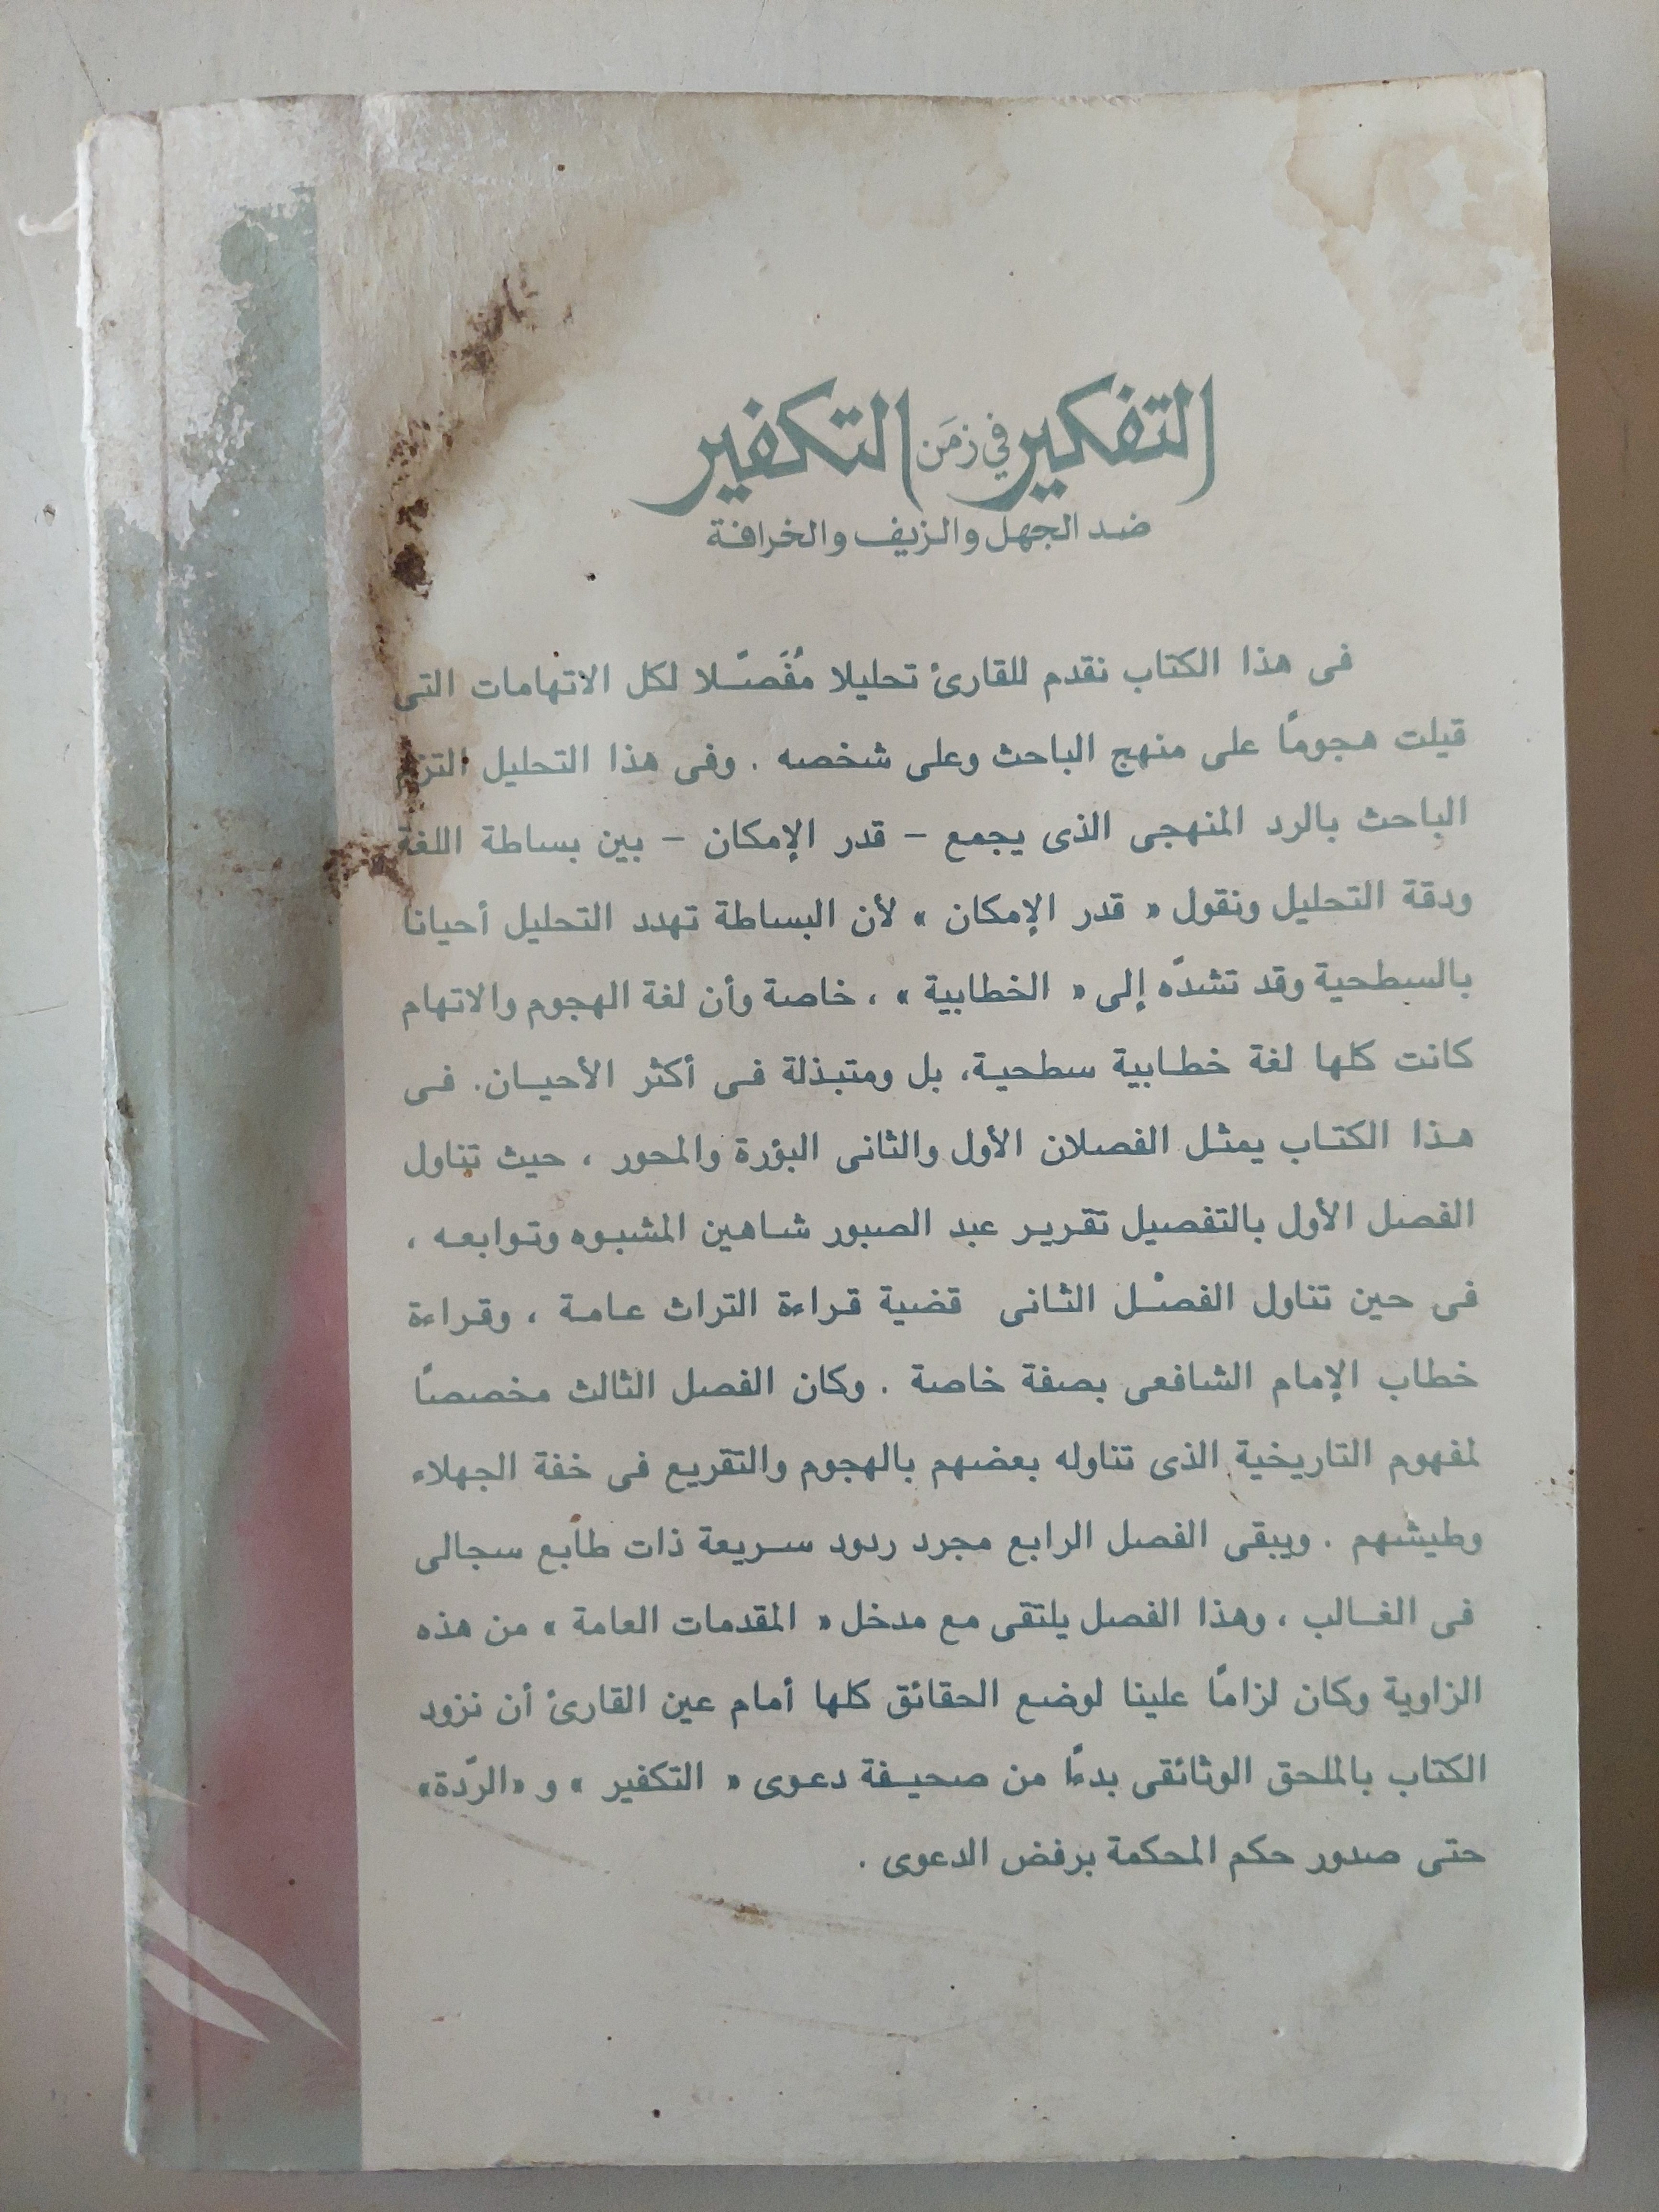 التفكير في زمَن التكفير
ضد الجهل والزيف والخرافة
فى هذا الكتاب نقدم للقارئ تحليلا مُفَصَّلا لكل الاتهامات التى
قيلت هجومًا على منهج الباحث وعلى شخصه . وفى هذا التحليل
الباحث بالرد المنهجى الذى يجمع – قدر الإمكان – بين بساطة اللغة
ودقة التحليل ونقول « قدر الإمكان » لأن البساطة تهدد التحليل أحيانا
بالسطحية وقد تشدّه إلى « الخطابية » ، خاصة وأن لغة الهجوم والاتهام
كانت كلها لغة خطابية سطحية، بل ومتبذلة فى أكثر الأحيان. فى
هذا الكتاب يمثل الفصلان الأول والثانى البؤرة والمحور ، حيث تناول
الفصل الأول بالتفصيل تقرير عبد الصبور شاهين المشبوه وتوابعه ،
فى حين تناول الفصْل الثانى قضية قراءة التراث عامة ، وقراءة
خطاب الإمام الشافعى بصفة خاصة . وكان الفصل الثالث مخصصًا
لمفهوم التاريخية الذى تناوله بعضهم بالهجوم والتقريع فى خفة الجهلاء
وطيشهم . ويبقى الفصل الرابع مجرد ردود سريعة ذات طابع سجالى
فى الغالب ، وهذا الفصل يلتقى مع مدخل « المقدمات العامة » من هذه
الزاوية وكان لزامًا علينا لوضع الحقائق كلها أمام عين القارئ أن نزود
الكتاب بالملحق الوثائقى بدءًا من صحيفة دعوى « التكفير » و «الردّة»
حتى صدور حكم المحكمة برفض الدعوى .